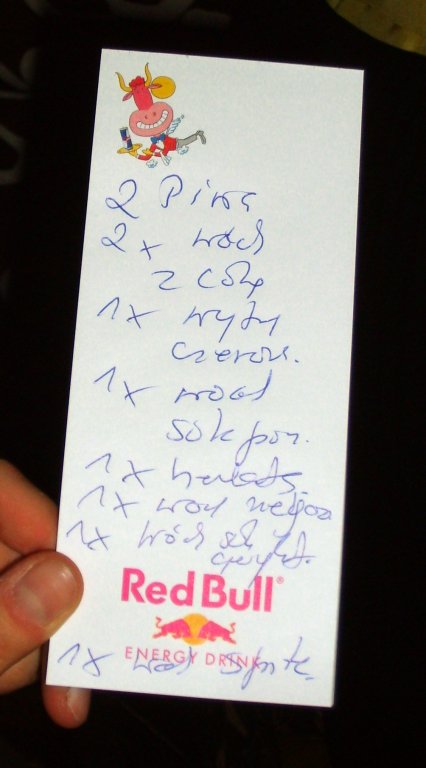 2 Piwa
2 x wód
z Colą
1x wyty
czerwon.
1x wód
sok pom.
1x herbata
1x wód
1x wód sok
Red Bull®
ENERGY DRINK
1x wód Sprite